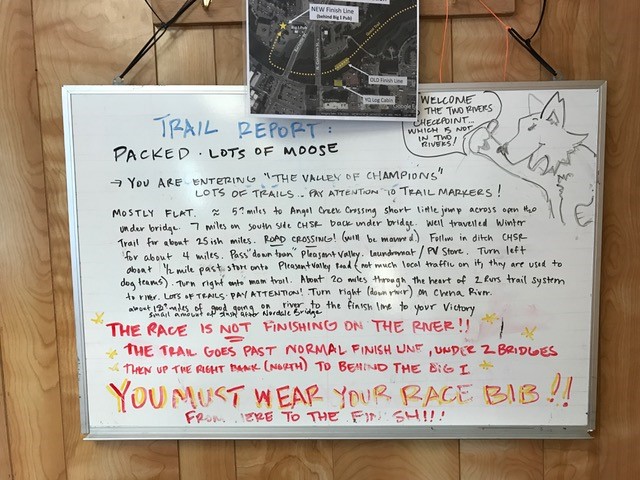 NEW Finish Line
(behind Big I Pub)
Big I Pub
OLD Finish Line
YQ Log Cabin
WELCOME
TO THE TWO RIVERS
CHECKPOINT...
WHICH IS NOT
IN TWO
RIVERS!
TRAIL REPORT:
PACKED. LOTS OF MOOSE
→ YOU ARE ENTERING "THE VALLEY OF CHAMPIONS"
LOTS OF TRAILS... PAY ATTENTION TO TRAIL MARKERS!
MOSTLY FLAT. ≈ 5? miles to Angel Creek Crossing short little jump across open H2O
under bridge. 7 miles on south side CHSR back under bridge. Well travelled Winter
Trail for about 25ish miles. ROAD CROSSING! (will be manned) Follow in ditch CHSR
for about 4 miles. Pass "down town" Pleasant Valley. Laundromat / PV Store. Turn left
about 1/2 mile past store onto Pleasant Valley Road (not much local traffic on it, they are used to
dog teams). Turn right onto main trail. About 20 miles through the heart of 2 Rvrs trail system
to river. LOTS OF TRAILS. PAY ATTENTION! Turn right (down river) on Chena River.
about 18? miles of good going on river to the finish line to your Victory
small amount of slushy at Nordale Bridge
THE RACE IS NOT FINISHING ON THE RIVER!!
THE TRAIL GOES PAST NORMAL FINISH LINE, UNDER 2 BRIDGES
THEN UP THE RIGHT BANK (NORTH) TO BEHIND THE BIG I
YOU MUST WEAR YOUR RACE BIB!!
FROM HERE TO THE FINISH!!!